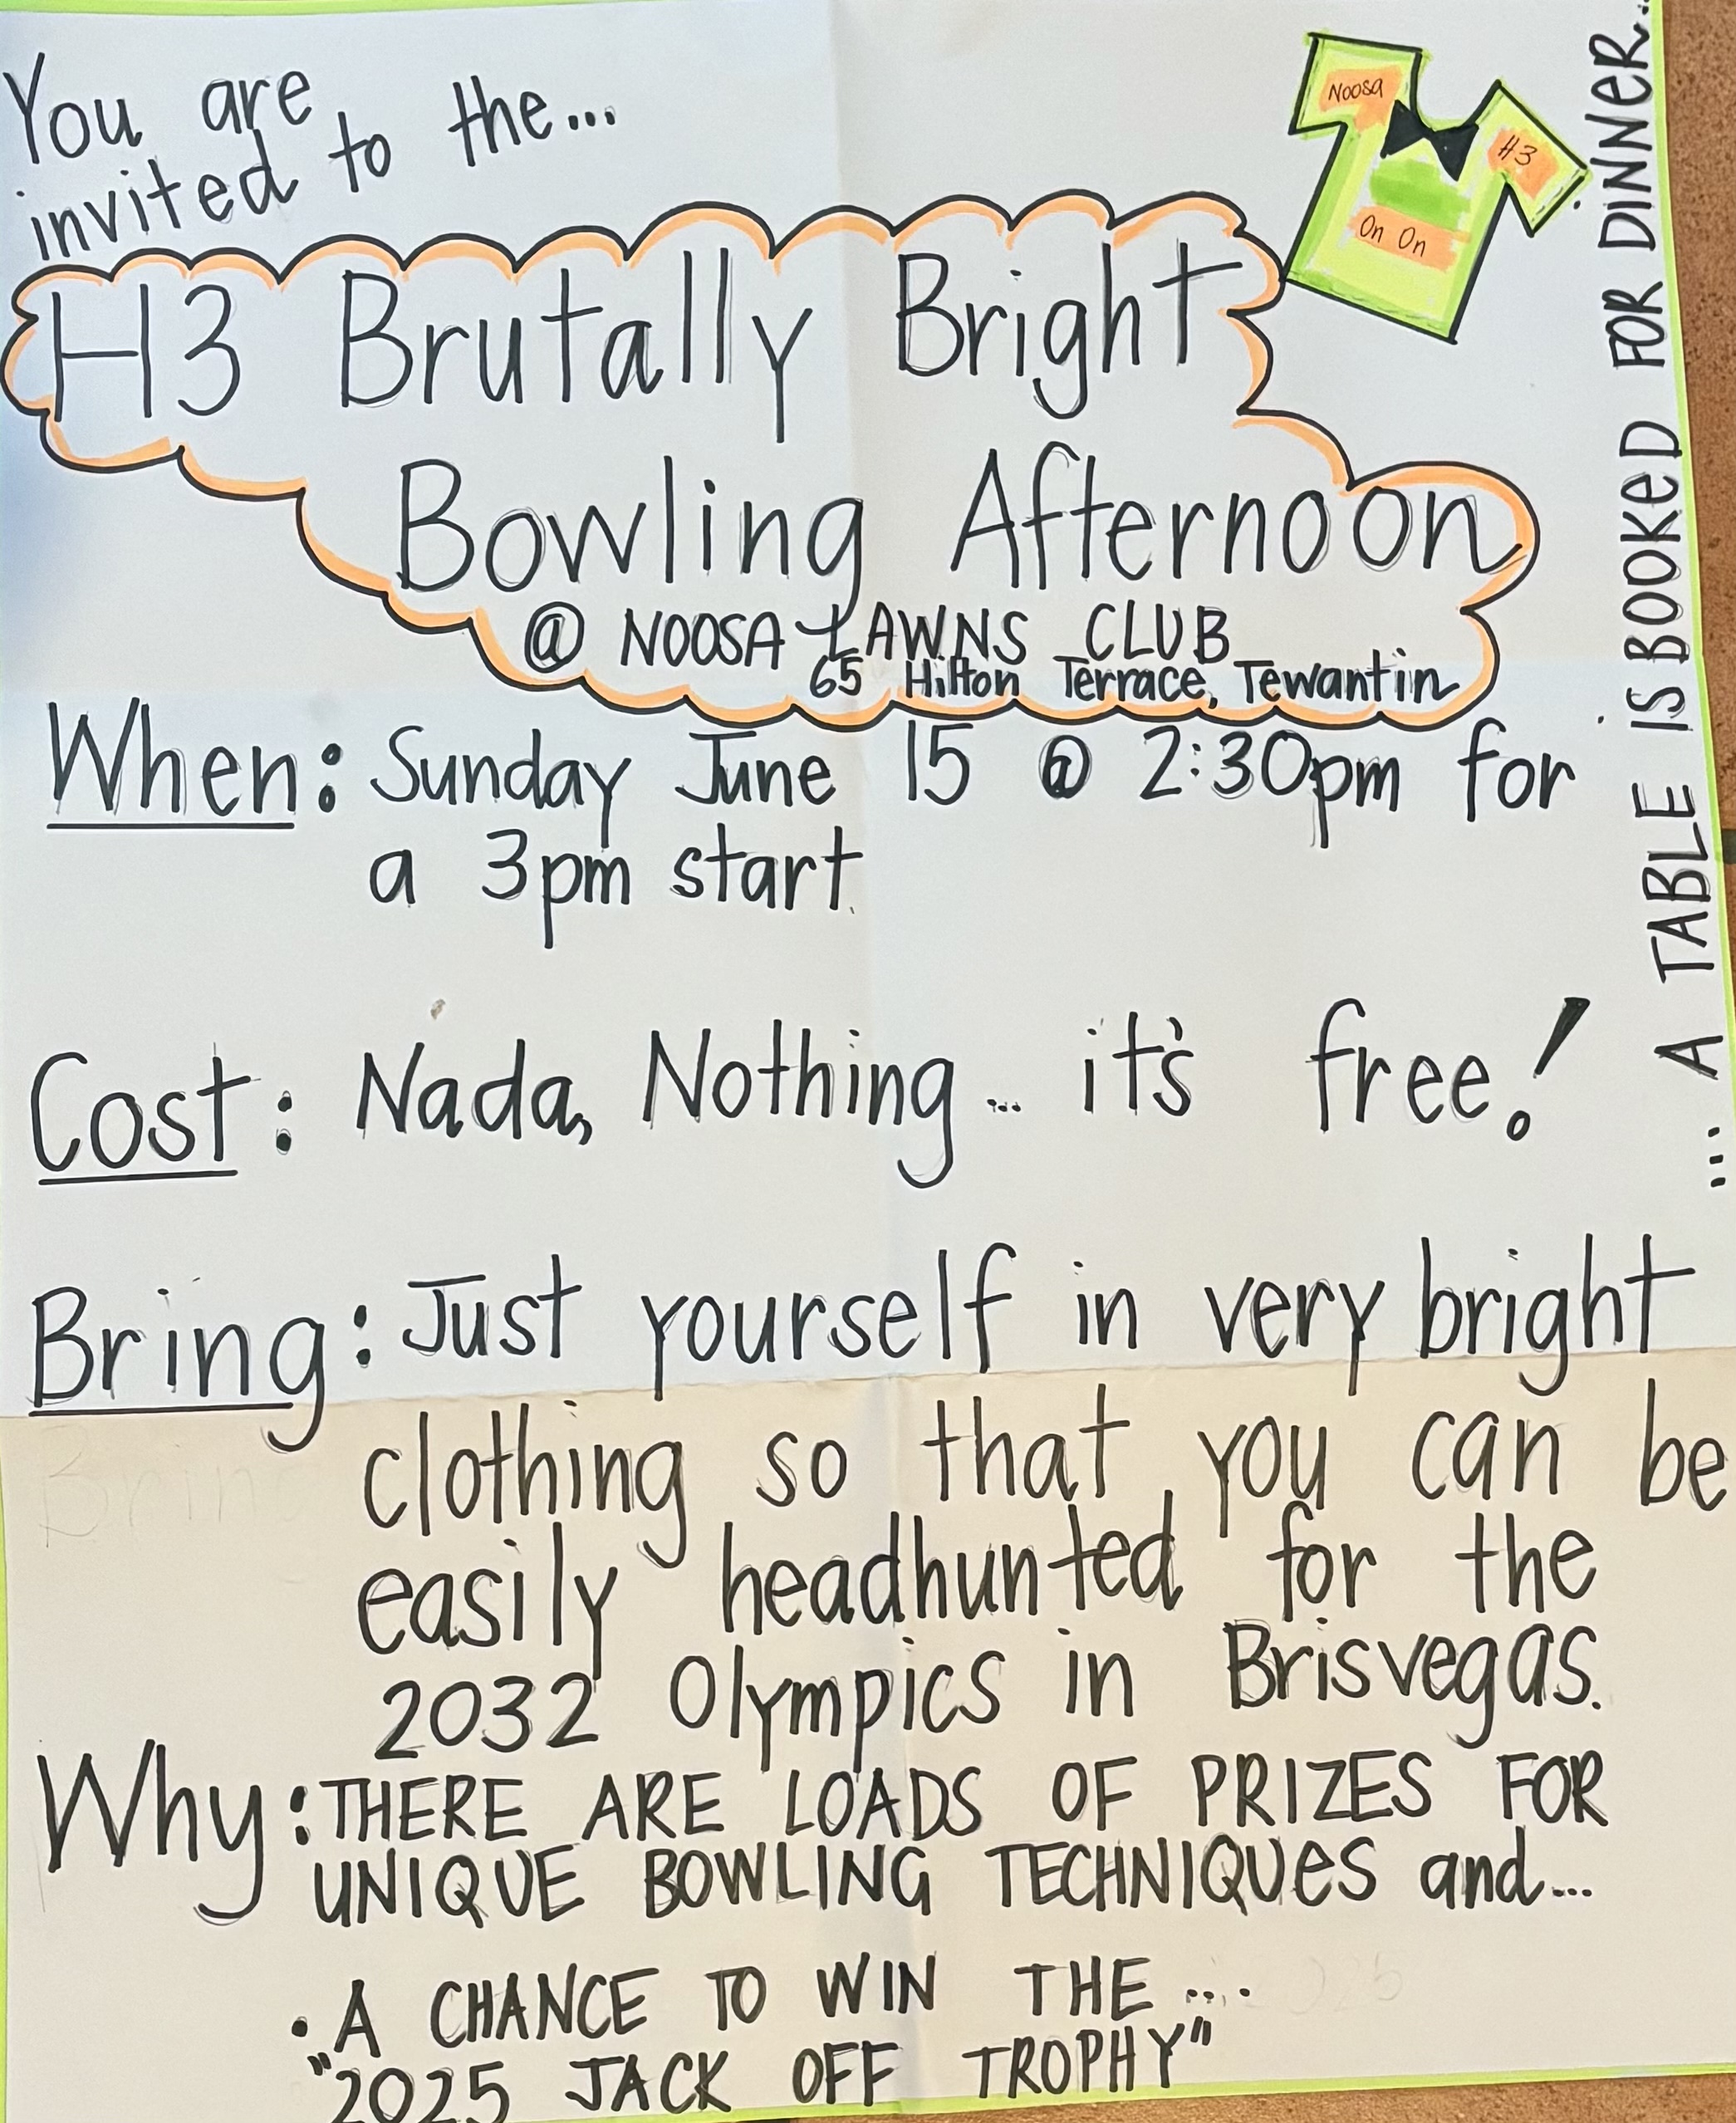 You are
invited to the...
Noosa
H3
On On
H3 Brutally Bright
Bowling Afternoon
@ NOOSA LAWNS CLUB
65 Hilton Terrace, Tewantin
When: Sunday June 15 @ 2:30pm for
a 3pm start.
Cost: Nada, Nothing... it's free!
Bring: Just yourself in very bright
clothing so that you can be
easily headhunted for the
2032 Olympics in Brisvegas.
Why: THERE ARE LOADS OF PRIZES FOR
UNIQUE BOWLING TECHNIQUES and...
• A CHANCE TO WIN THE ....
"2025 JACK OFF TROPHY"
... A TABLE IS BOOKED FOR DINNER...